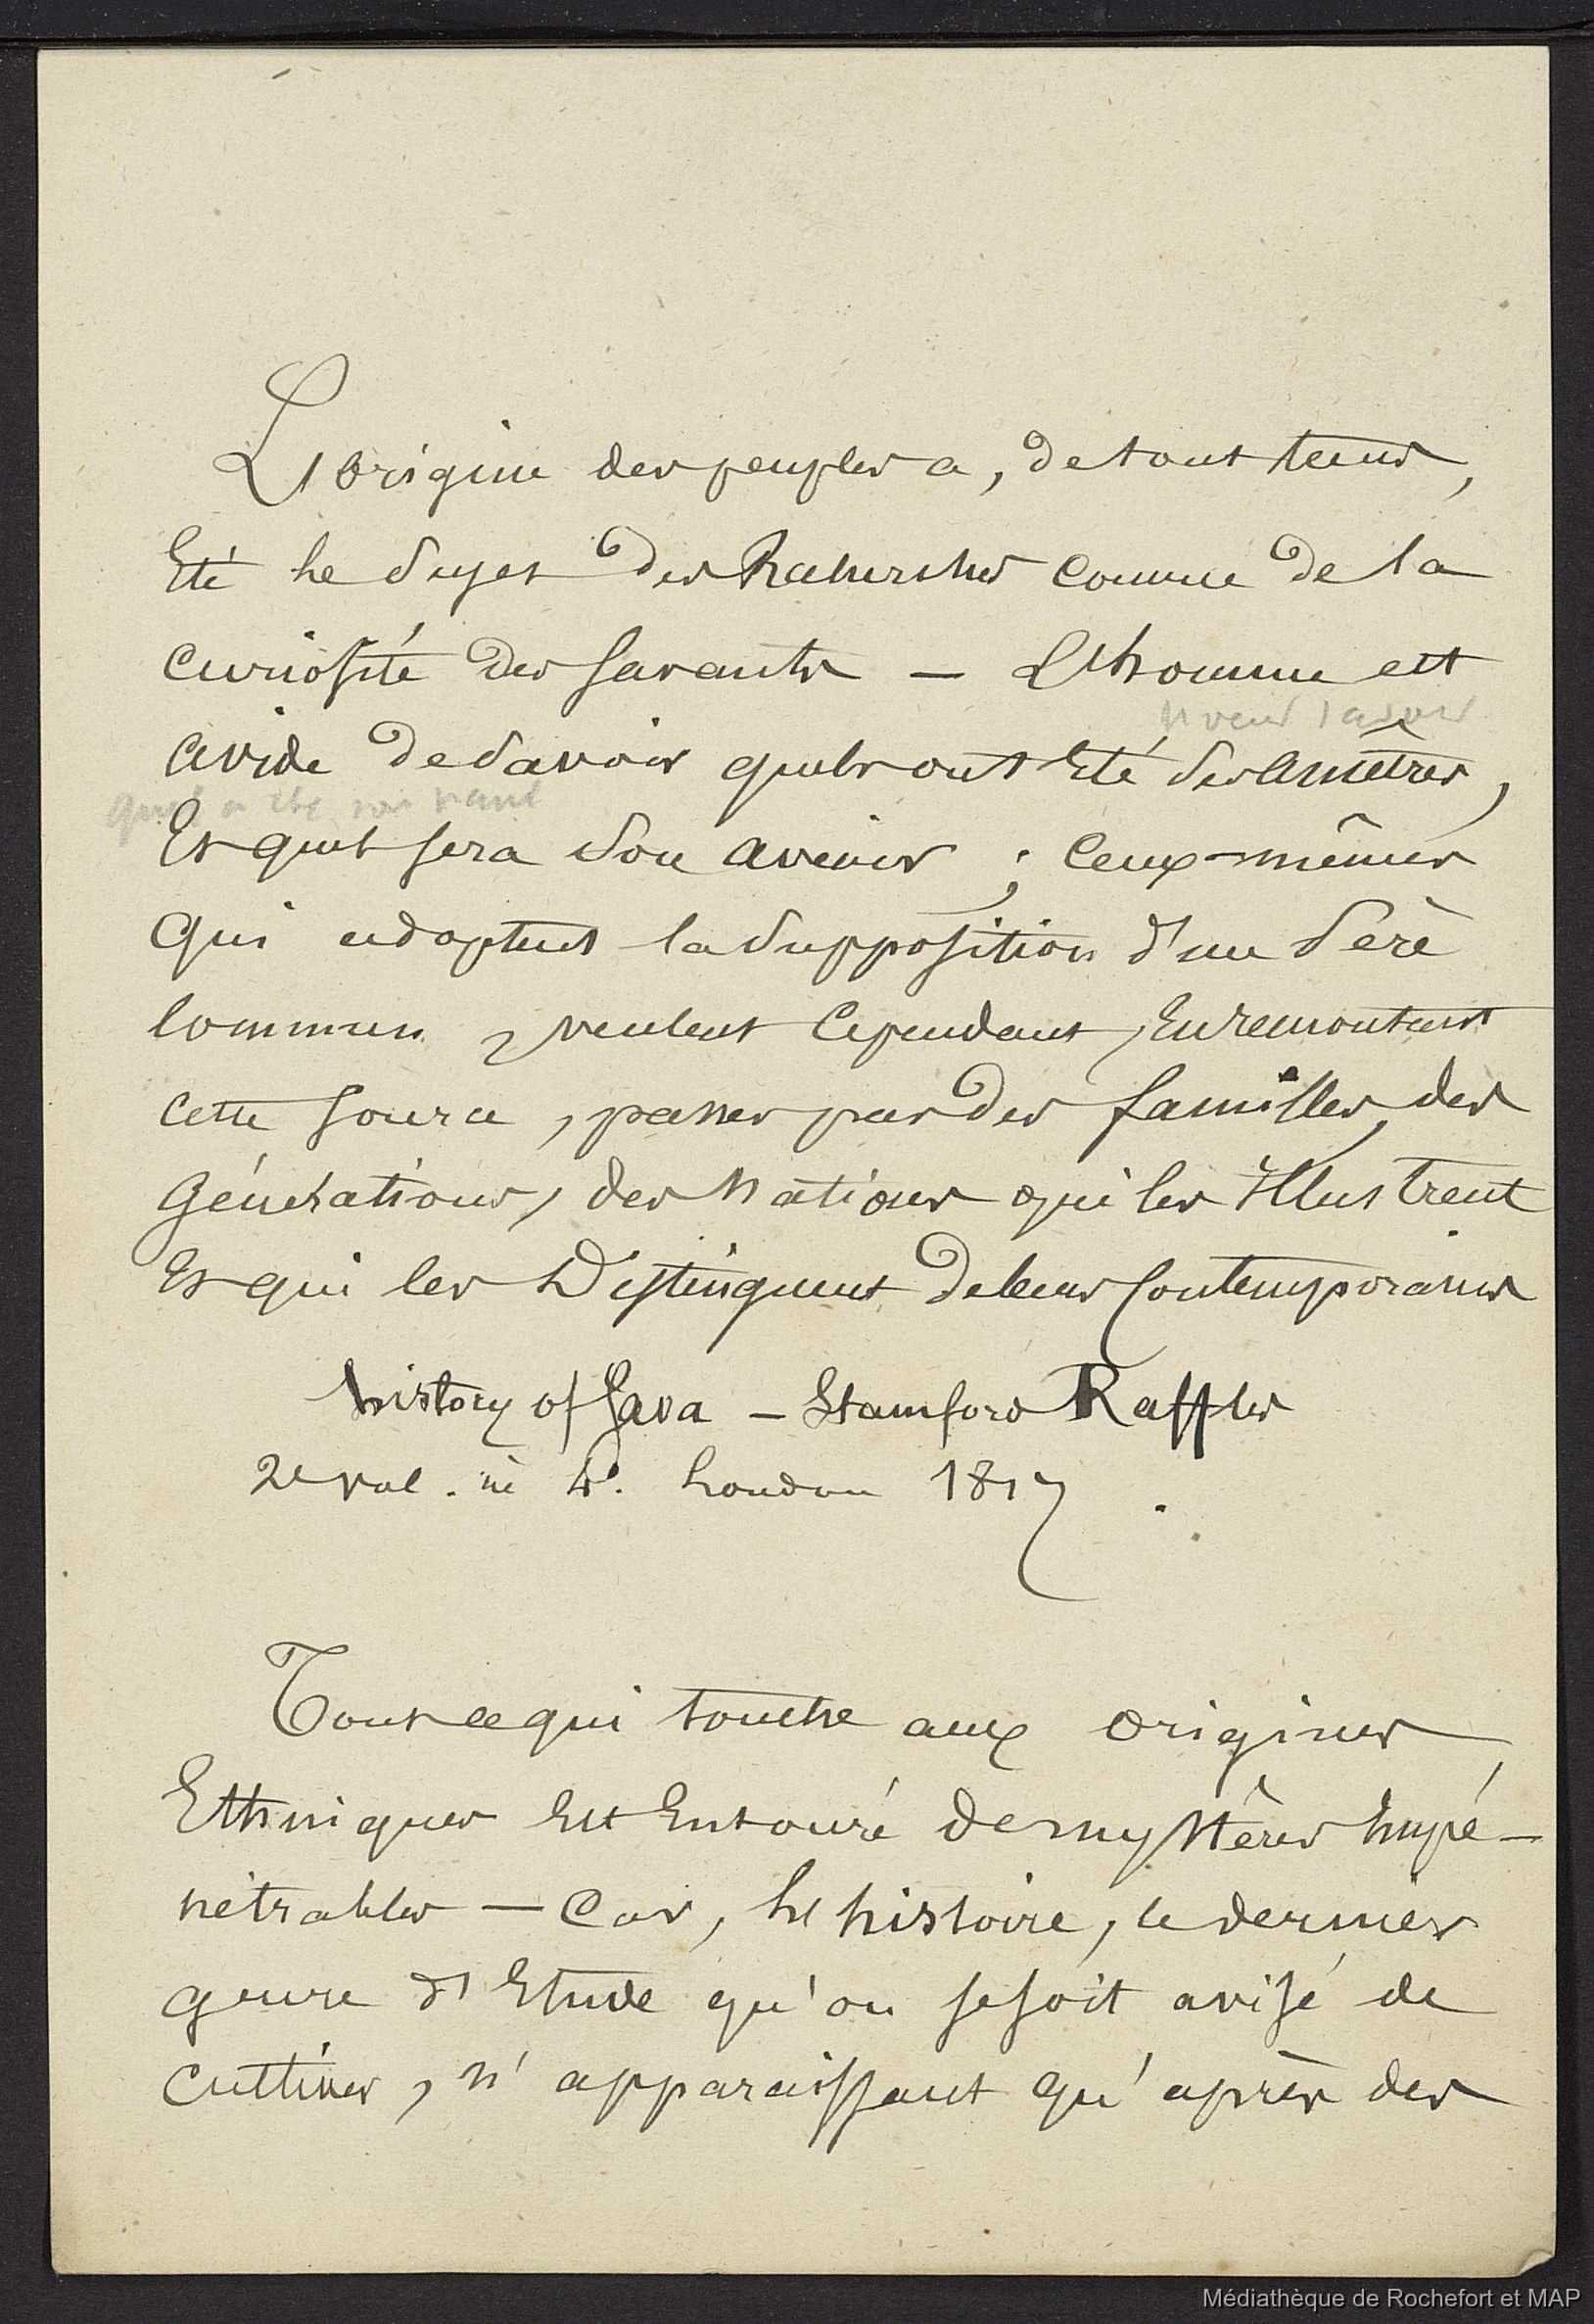 L'origine des peuples a, de tout tems,
Eté le Sujet des Recherches comme de la
curiosité des Savants — L'homme est
il veut savoir
avide de Savoir quels ont Eté Ses Ancêtres,
quel a été son
Et quel sera Son avenir ; Ceux-mêmes
qui adoptent la Supposition d'un Père
Commun, veulent Cependant, En remontant
cette Source, passer par des familles, des
Générations, des Nations qui les Illustrent
Et qui les Distinguent de leurs Contemporains
history of Java — Stamford Raffles
2e vol. in 4°. London 1817.
Tout ce qui touche aux origines
Ethniques Est Entouré de mystères Impé-
nétrables — Car, L'histoire, le dernier
genre d'Etude qu'on se soit avisé de
cultiver, n'apparaissant qu'après des
Médiathèque de Rochefort et MAP